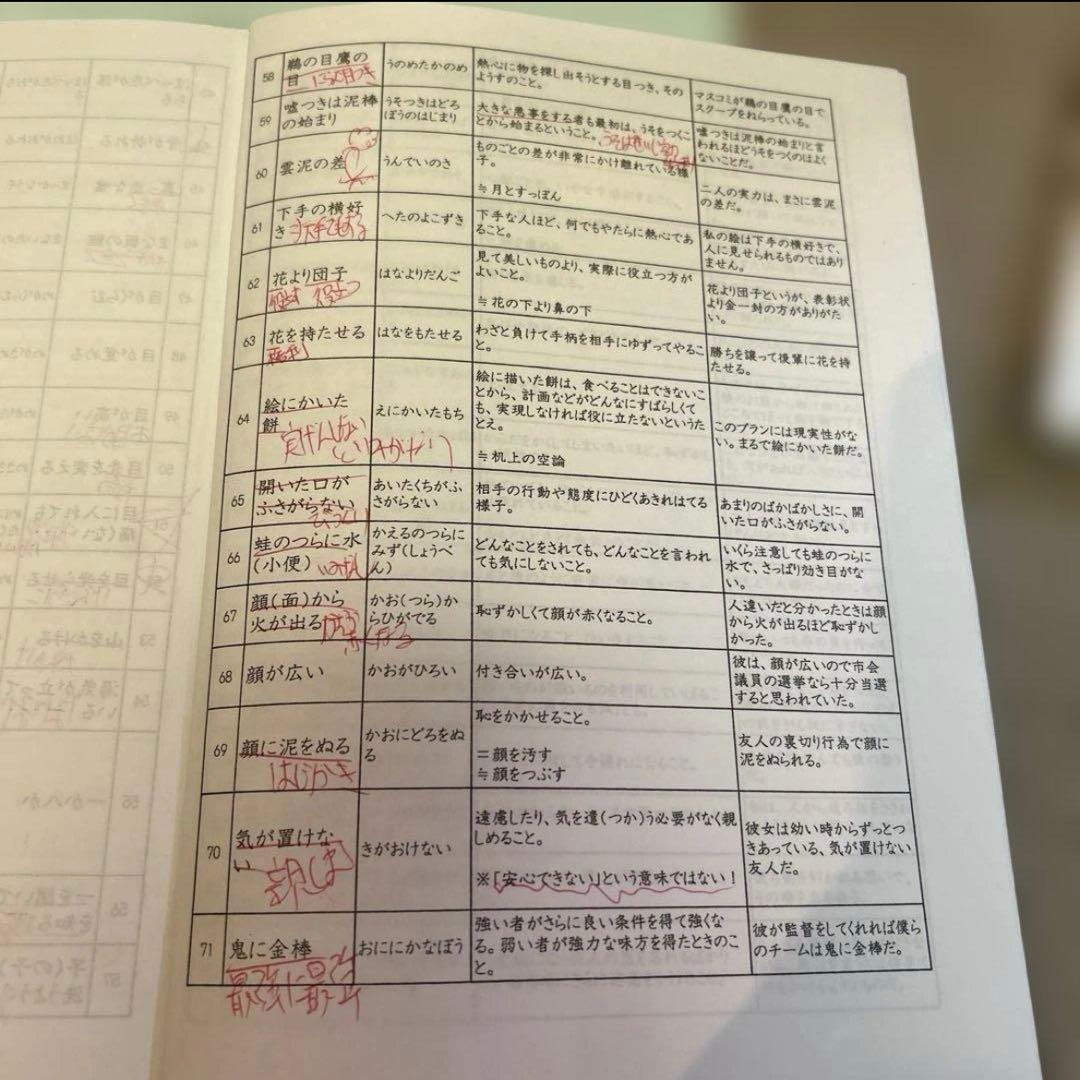 58 鵜の目鷹の
目
うのめたかのめ
熱心に物を探し出そうとする目つき、その
ようすのこと。
マスコミが鵜の目鷹の目で
スクープをねらっている。
59 嘘つきは泥棒
の始まり
うそつきはどろ
ぼうのはじまり
大きな悪事をする者も最初は、うそをつくこ
とから始まるということ。
嘘つきは泥棒の始まりと言
われるほどうそをつくのはよく
ないことだ。
60 雲泥の差
うんでいのさ
ものごとの差が非常にかけ離れている様
子。
≒月とすっぽん
二人の実力は、まさに雲泥
の差だ。
61 下手の横好
き
へたのよこずき
下手な人ほど、何でもやたらに熱心であ
ること。
私の絵は下手の横好きで、
人に見せられるものではあり
ません。
62 花より団子
はなよりだんご
見て美しいものより、実際に役立つ方が
よいこと。
≒花の下より鼻の下
花より団子というが、表彰状
より金一封の方がありがた
い。
役立つ
63 花を持たせる
はなをもたせる
わざと負けて手柄を相手にゆずってやるこ
と。
勝ちを譲って後輩に花を持
たせる。
64 絵にかいた
餅
えにかいたもち
絵に描いた餅は、食べることはできないこ
とから、計画などがどんなにすばらしくて
も、実現しなければ役に立たないというた
とえ。
≒机上の空論
このプランには現実性がな
い。まるで絵にかいた餅だ。
実げんしない
といみがない
65 開いた口が
ふさがらない
あいたくちがふ
さがらない
相手の行動や態度にひどくあきれはてる
様子。
あまりのばかばかしさに、開
いた口がふさがらない。
66 蛙のつらに水
(小便)
かえるのつらに
みず(しょうべ
ん)
どんなことをされても、どんなことを言われ
ても気にしないこと。
いくら注意しても蛙のつらに
水で、さっぱり効き目がな
い。
67 顔(面)から
火が出る
かお(つら)か
らひがでる
恥ずかしくて顔が赤くなること。
人違いだと分かったときは顔
から火が出るほど恥ずかし
かった。
赤くなる
68 顔が広い
かおがひろい
付き合いが広い。
彼は、顔が広いので市会
議員の選挙なら十分当選
すると思われていた。
69 顔に泥をぬる
かおにどろをぬ
る
恥をかかせること。
=顔を汚す
≒顔をつぶす
友人の裏切り行為で顔に
泥をぬられる。
はじかき
70 気が置けな
い
きがおけない
遠慮したり、気を遣(つか)う必要がなく親
しめること。
※「安心できない」という意味ではない!
彼女は幼い時からずっとつ
きあっている、気が置けない
友人だ。
親しま
71 鬼に金棒
おににかなぼう
強い者がさらに良い条件を得て強くな
る。弱い者が強力な味方を得たときのこ
と。
彼が監督をしてくれれば僕ら
のチームは鬼に金棒だ。